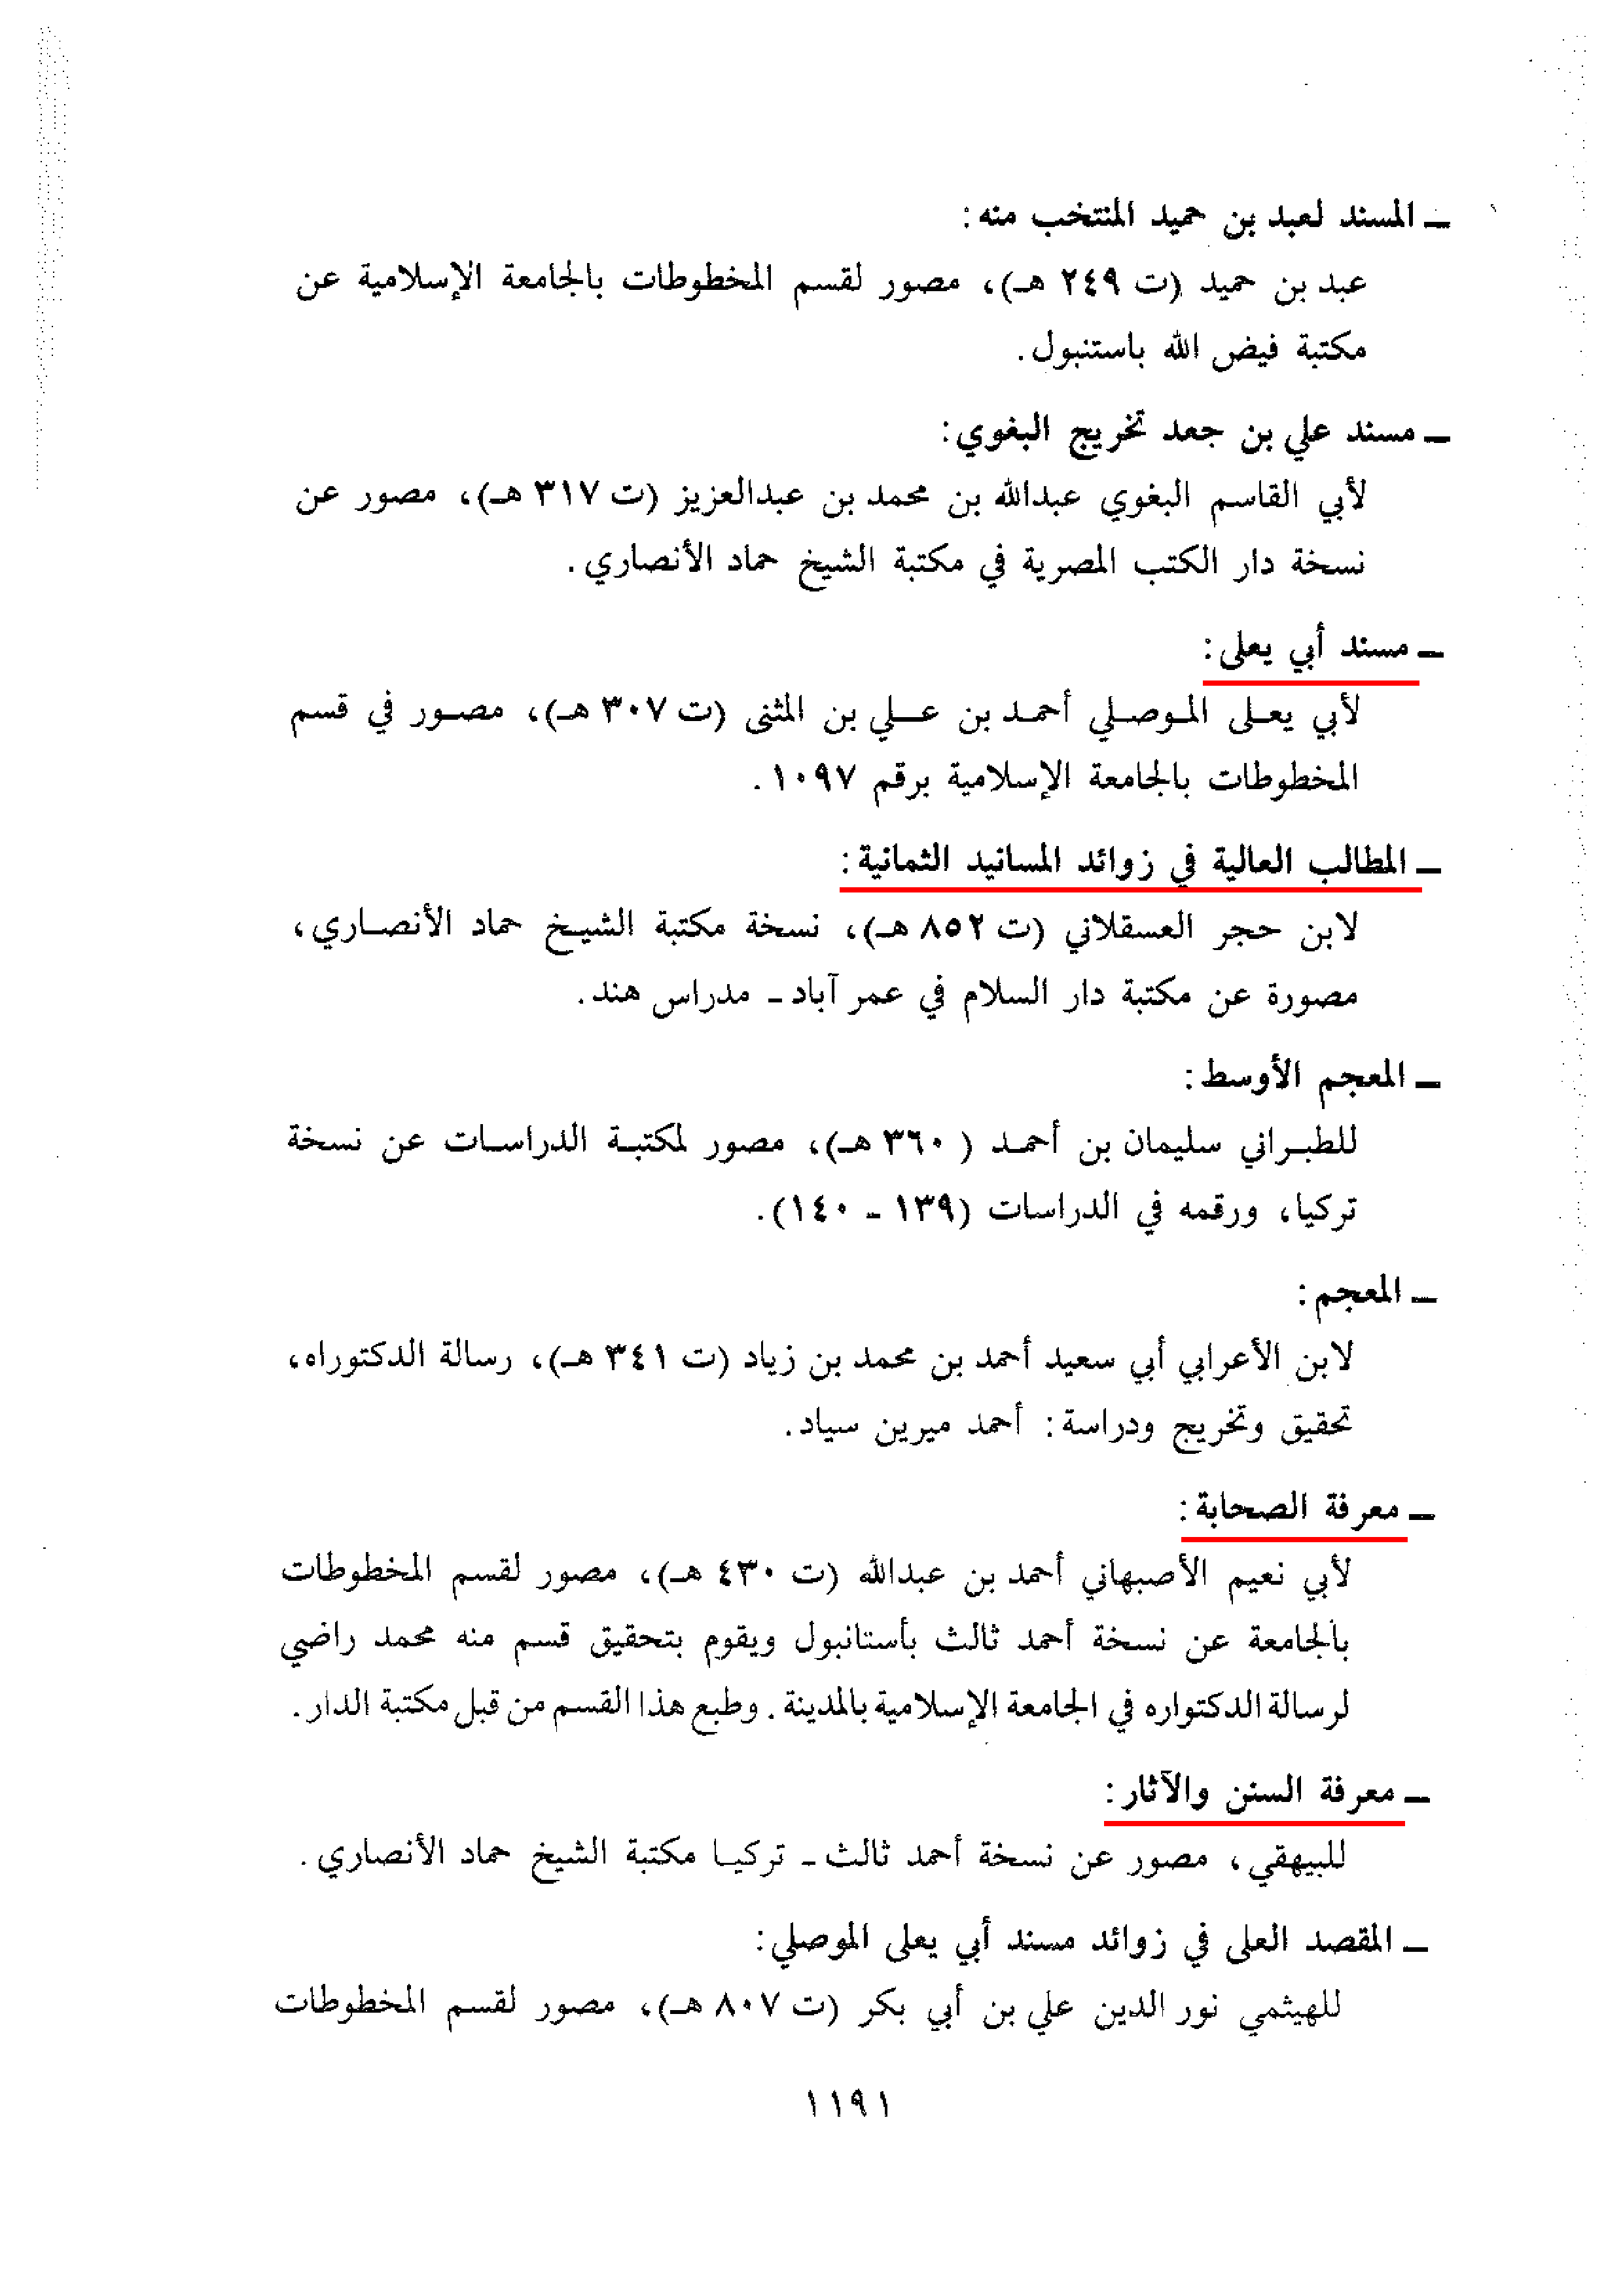 ـ المسند لعبد بن حميد المنتخب منه:
عبد بن حميد (ت ٢٤٩ هـ)، مصور لقسم المخطوطات بالجامعة الإسلامية عن
مكتبة فيض الله باستنبول.
ـ مسند علي بن جعد تخريج البغوي:
لأبي القاسم البغوي عبدالله بن محمد بن عبدالعزيز (ت ٣١٧ هـ)، مصور عن
نسخة دار الكتب المصرية في مكتبة الشيخ حماد الأنصاري.
ـ مسند أبي يعلى:
لأبي يعلى الموصلي أحمد بن علي بن المثنى (ت ٣٠٧ هـ)، مصور في قسم
المخطوطات بالجامعة الإسلامية برقم ١٠٩٧.
ـ المطالب العالية في زوائد المسانيد الثمانية:
لابن حجر العسقلاني (ت ٨٥٢ هـ)، نسخة مكتبة الشيخ حماد الأنصاري،
مصورة عن مكتبة دار السلام في عمر آباد ـ مدراس هند.
ـ المعجم الأوسط:
للطبراني سليمان بن أحمد ( ٣٦٠ هـ)، مصور لمكتبة الدراسات عن نسخة
تركيا، ورقمه في الدراسات (١٣٩ ـ ١٤٠).
ـ المعجم:
لابن الأعرابي أبي سعيد أحمد بن محمد بن زياد (ت ٣٤١ هـ)، رسالة الدكتوراه،
تحقيق وتخريج ودراسة: أحمد ميرين سياد.
ـ معرفة الصحابة:
لأبي نعيم الأصبهاني أحمد بن عبدالله (ت ٤٣٠ هـ)، مصور لقسم المخطوطات
بالجامعة عن نسخة أحمد ثالث بأستانبول ويقوم بتحقيق قسم منه محمد راضي
لرسالة الدكتواره في الجامعة الإسلامية بالمدينة. وطبع هذا القسم من قبل مكتبة الدار.
ـ معرفة السنن والآثار:
للبيهقي، مصور عن نسخة أحمد ثالث ـ تركيا مكتبة الشيخ حماد الأنصاري.
ـ المقصد العلى في زوائد مسند أبي يعلى الموصلي:
للهيثمي نور الدين علي بن أبي بكر (ت ٨٠٧ هـ)، مصور لقسم المخطوطات
١١٩١